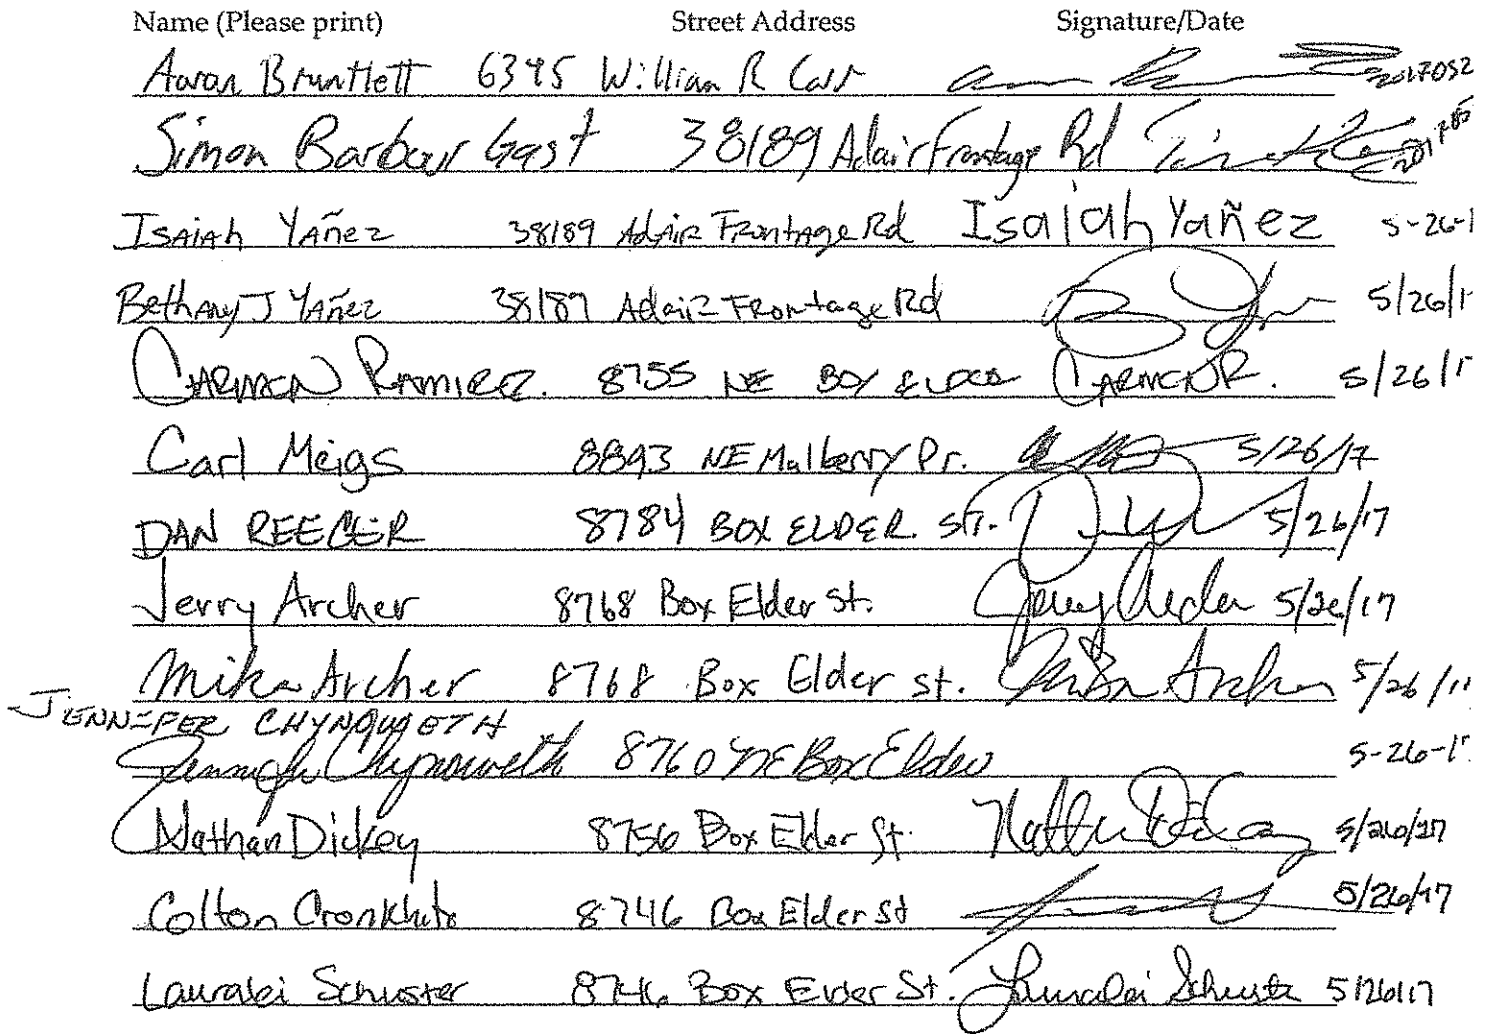 Name (Please print) Street Address Signature/Date
Aaron Bruntlett 6345 William R Carr 2017052
Simon Barbour Gast 38189 Adair Frontage Rd
Isaiah Yañez 38189 Adair Frontage Rd Isaiah Yañez 5-26-1
Bethany J Yañez 38189 Adair Frontage Rd 5/26/1
CARMEN RAMIREZ. 8755 NE BOX ELDER CARMEN R. 5/26/1
Carl Meigs 8893 NE Mulberry Dr. 5/26/17
DAN REECER 8784 BOX ELDER ST. 5/26/17
Jerry Archer 8768 Box Elder St. Jerry Archer 5/26/17
Mika Archer 8768 Box Elder St. Mika Archer 5/26/1
JENNIFER CHYNOWETH
Jennifer Chynoweth 8760 NE Box Elder 5-26-1
Nathan Dickey 8756 Box Elder St. 5/26/17
Colton Cronkhite 8746 Box Elder St 5/26/17
Lauralei Schuster 8746 Box Elder St. Lauralei Schuster 5/26/17